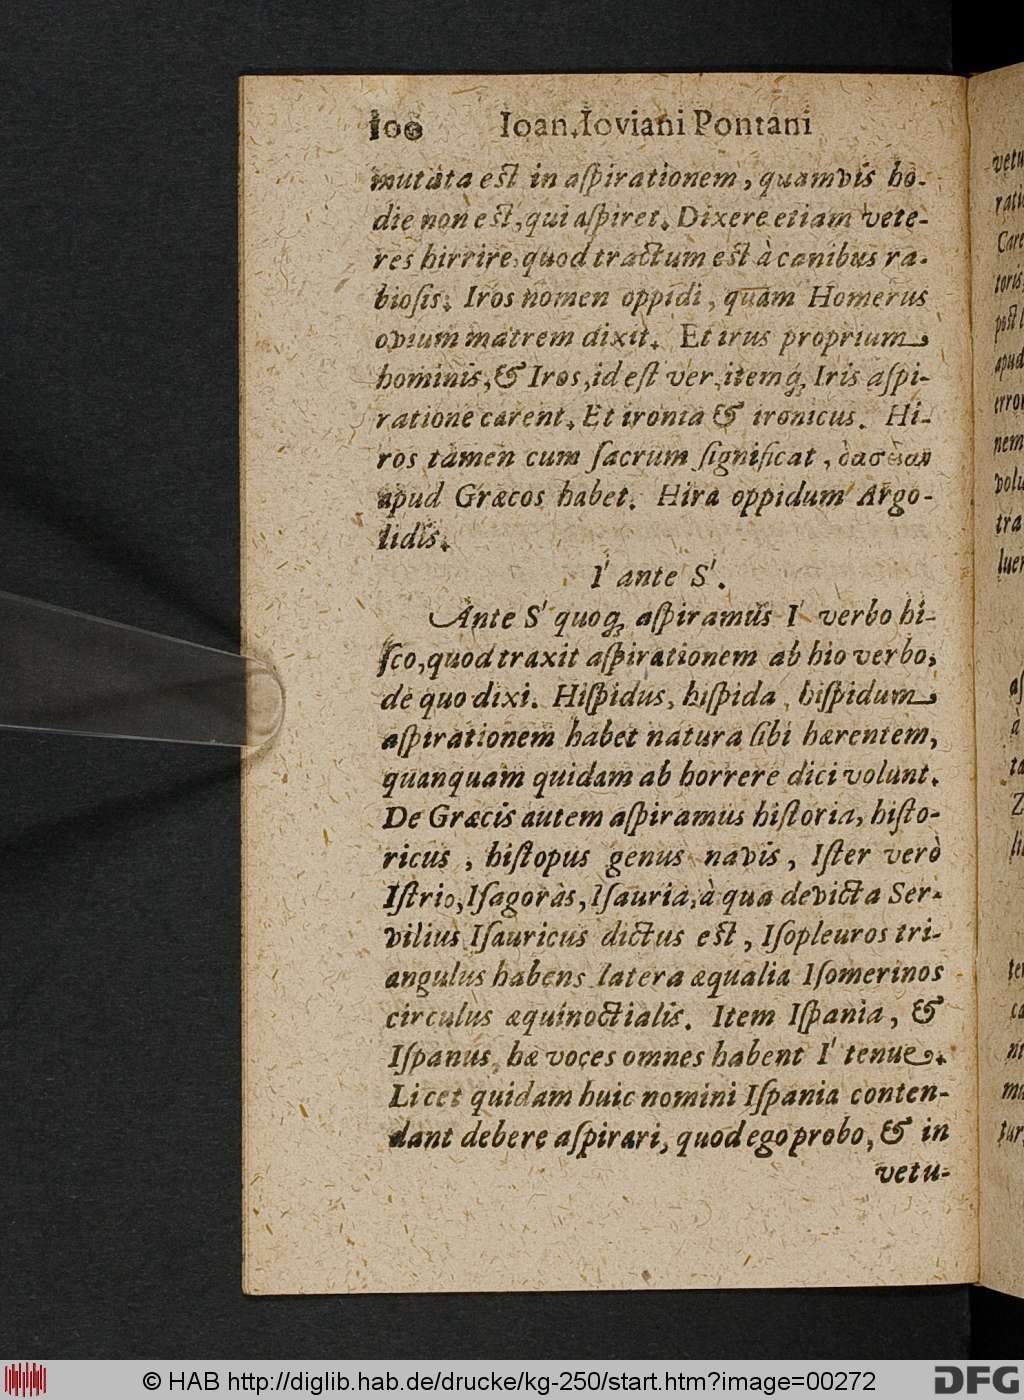 100 Ioan. Ioviani Pontani
mutata est in aſpirationem, quamvis ho-
die non est, qui aſpiret. Dixere etiam vete-
res hirrire, quod tractum est à canibus ra-
bioſis. Iros nomen oppidi, quam Homerus
ovium matrem dixit. Et irus proprium
hominis, & Iros, id eſt ver, itemq́; Iris aſpi-
ratione carent. Et ironia & ironicus. Hi-
ros tamen cum ſacrum ſignificat,
apud Græcos habet. Hira oppidum Argo-
lidis.
I' ante S'.
Ante S' quoq́; aſpiramus I' verbo hi-
ſco, quod traxit aſpirationem ab hio verbo,
de quo dixi. Hiſpidus, hiſpida, hiſpidum
aſpirationem habet natura ſibi hærentem,
quanquam quidam ab horrere dici volunt.
De Græcis autem aſpiramus hiſtoria, hiſto-
ricus, hiſtopus genus navis, Iſter verò
Iſtrio, Iſagoras, Iſauria, à qua devicta Ser-
vilius Iſauricus dictus est, Iſopleuros tri-
angulus habens latera æqualia Iſomerinos
circulus æquinoctialis. Item Iſpania, &
Iſpanus, hæ voces omnes habent I' tenue.
Licet quidam huic nomini Iſpania conten-
dant debere aſpirari, quod ego probo, & in
vetu-
© HAB http://diglib.hab.de/drucke/kg-250/start.htm?image=00272
DFG